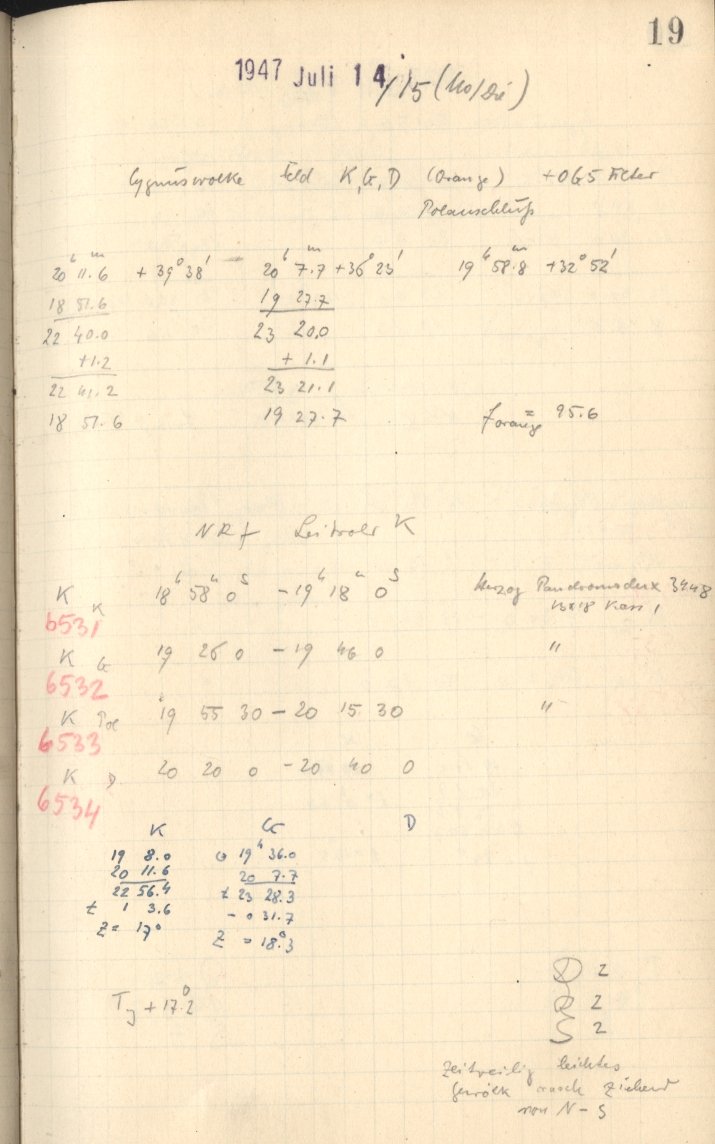 19
1947 Juli 14./15 (Mo/Die)
Cygnuswolke Feld K, G, D (Orange) + OG5 Filter
Polanschluß
20ʰ 11.6ᵐ + 39° 38' 20ʰ 7.7ᵐ + 36° 23' 19ʰ 58.8ᵐ +32° 52'
18 51.6 19 27.7
22 40.0 23 20.0
+1.2 + 1.1
22 41.2 23 21.1
18 51.6 19 27.7 f orange = 95.6
NRf Leitrohr K
K K 18ʰ 58ᵐ 0ˢ - 19ʰ 18ᵐ 0ˢ Herzog 3448
6531 Kass 1
K G 19 26 0 - 19 46 0 "
6532
K Pol 19 55 30 - 20 15 30 "
6533
K D 20 20 0 - 20 40 0
6534
K G D
19 8.0 19ʰ 36.0
20 11.6 20 7.7
22 56.4 t 23 28.3
t 1 3.6 - 0 31.7
Z = 17° Z = 18.3°
T + 17.2°
D 2
R 2
S 2
Zeitweilig leichtes
Gewölk rasch ziehend
von N - S